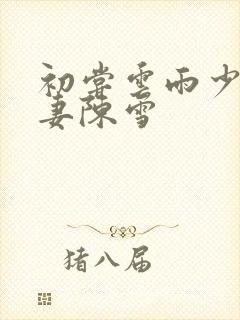 初尝云雨少
妻陈雪
猪八届